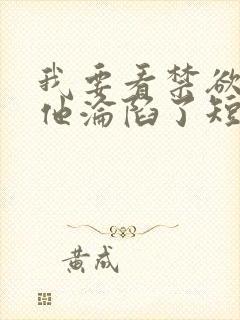 我要看禁欲
他沦陷了短
黄成